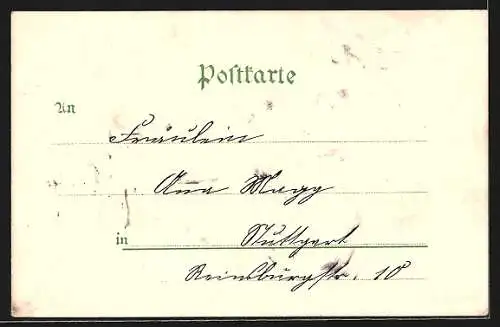 Postkarte
An
Fräulein
Anna Magg
in Stuttgart
Reinsburgstr. 10